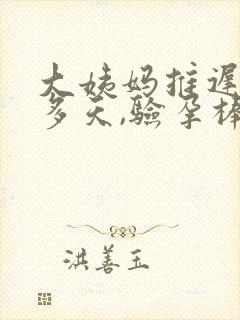 大姨妈推迟
多天,验孕棒
洪善玉